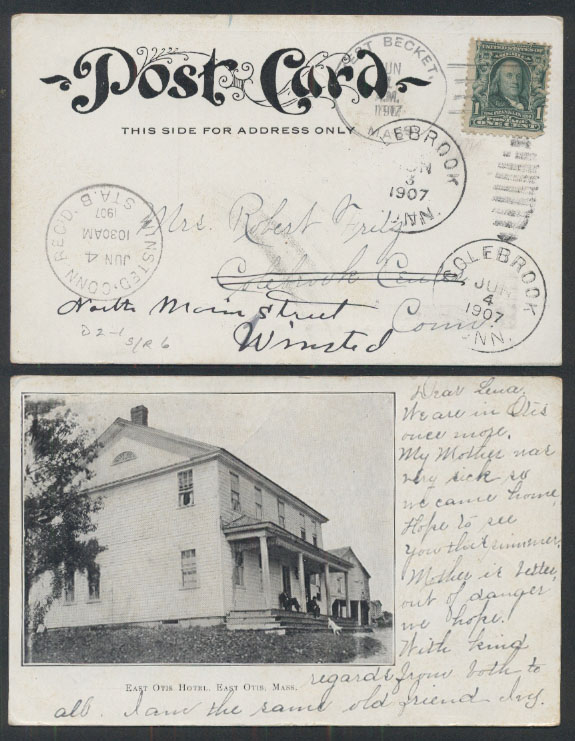 Post Card
THIS SIDE FOR ADDRESS ONLY
WEST BECKET,
JUN
A.M.
1907
MASS.
UNITED STATES OF AMERICA
1 1
ONE CENT
COLEBROOK
JUN
3
1907
CONN.
WINSTED, CONN. REC'D.
JUN 4
1030AM
1907
STA. B.
COLEBROOK
JUN
4
1907
CONN.
Mrs. Robert Fritz
Colebrook Center
North Main Street Conn.
Winsted
D2-1
S/R 6
Dear Lena,
We are in Otis
once more.
My Mother was
very sick so
we came home,
Hope to see
you this summer.
Mother is better,
out of danger
we hope.
With kind
regards from both to
all. I am the same old friend Ivy.
EAST OTIS HOTEL, EAST OTIS, MASS.